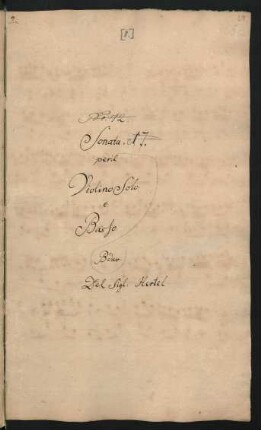 [8]
Sonata.
per il
Violino Solo
e
Basso
Del Sigl. Hertel